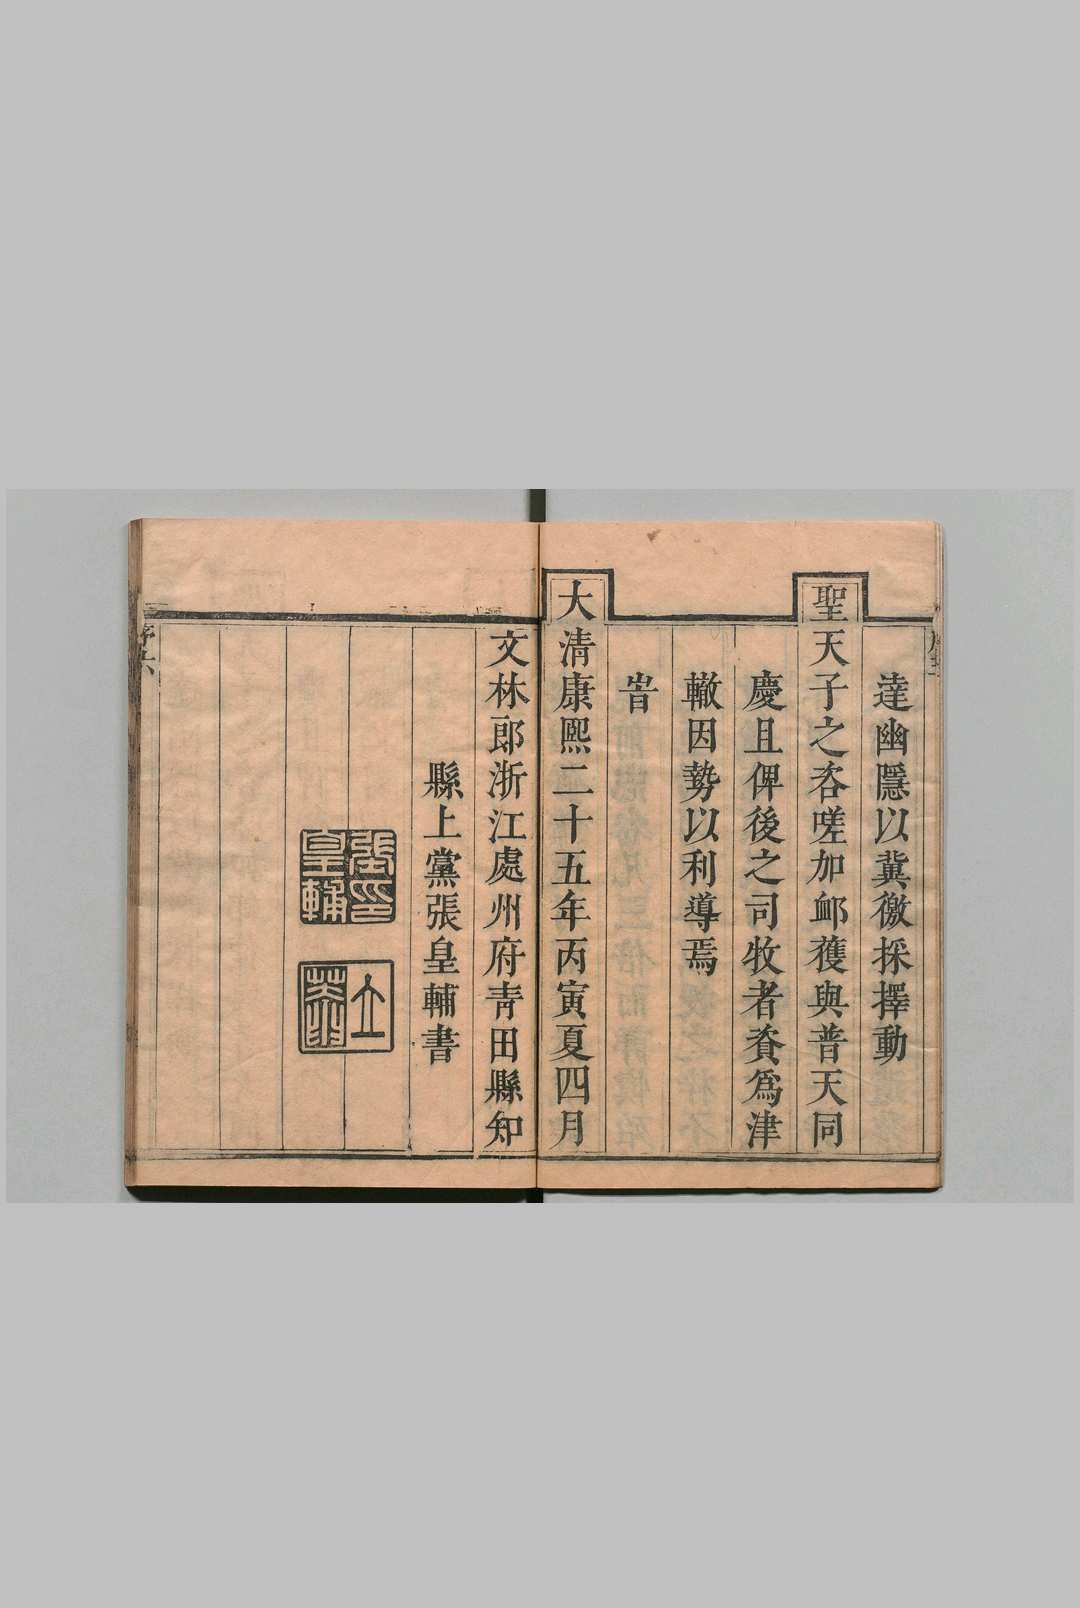 達幽隱以冀徼採擇動
聖天子之咨嗟加卹獲與普天同
慶且俾後之司牧者資爲津
轍因勢以利導焉
旹
大清康熙二十五年丙寅夏四月
文林郎浙江處州府青田縣知
縣上黨張皇輔書
張皇輔印
序六